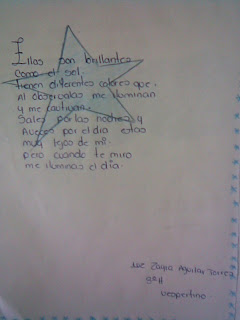 Ellos son brillantes
como el sol.
Tienen diferentes colores que
al observalos me iluminan
y me cautivan.
Sales por las noches y
Aveces por el dia estas
muy lejos de mi.
pero cuando te miro
me iluminas el dia.
Zaira Aguilar Torres
vespertino.